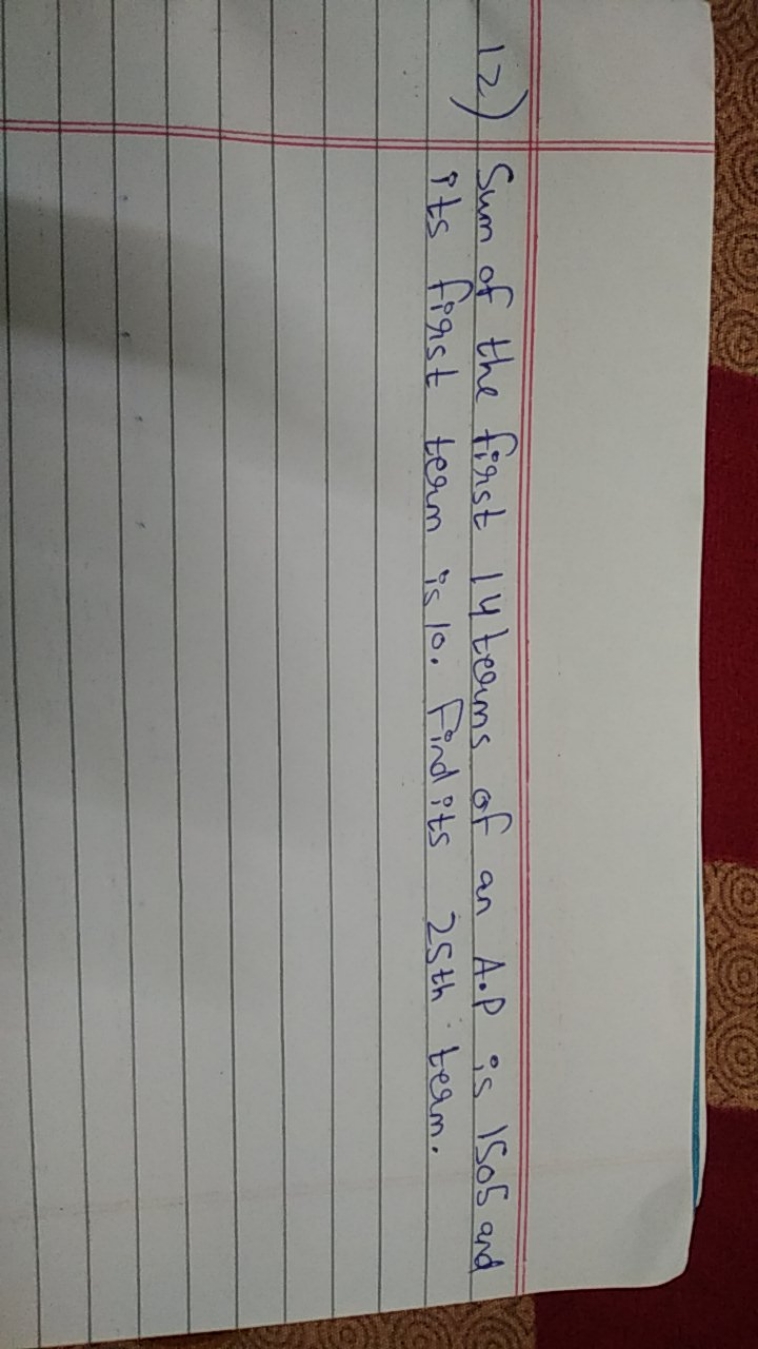 12) Sum of the first 14 terms of an A.P is 1505 and
its first term is 10. Find its 25th term.